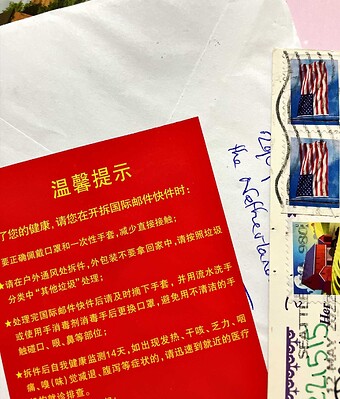 温馨提示
了您的健康，请您在开拆国际邮件快件时：
要正确佩戴口罩和一次性手套，减少直接接触；
★请在户外通风处拆件，外包装不要拿回家中，请按照垃圾
分类中“其他垃圾”处理；
★处理完国际邮件快件后请及时摘下手套，并用流水洗手
或使用手消毒剂消毒手后更换口罩，避免用不清洁的手
触碰口、眼、鼻等部位；
★拆件后自我健康监测14天，如出现发热、干咳、乏力、咽
痛、嗅（味）觉减退、腹泻等症状的，请迅速到就近的医疗
机构就诊排查。
the Netherland
USPS
SEATTLE
MAY 2